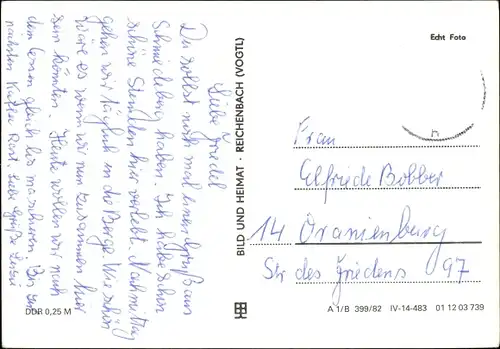 Liebe Friedel
Du sollst noch mal einen Gruß aus
Schmiedeberg haben. Ich habe schon
schöne Stunden hier verlebt. Nachmittag
gehen wir täglich in die Berge. Wie schön
wäre es wenn wir nun zusammen hier
sein könnten. Heute wollen wir nach
dem Essen gleich los marschieren. Bis zum
nächsten Kaffee Rant. Liebe Grüße
DDR 0,25 M
BILD UND HEIMAT · REICHENBACH (VOGTL)
Echt Foto
Frau
Elfriede Bobber
14 Oranienburg
Str des Friedens 97
A 1/B 399/82 IV-14-483 01 12 03 739